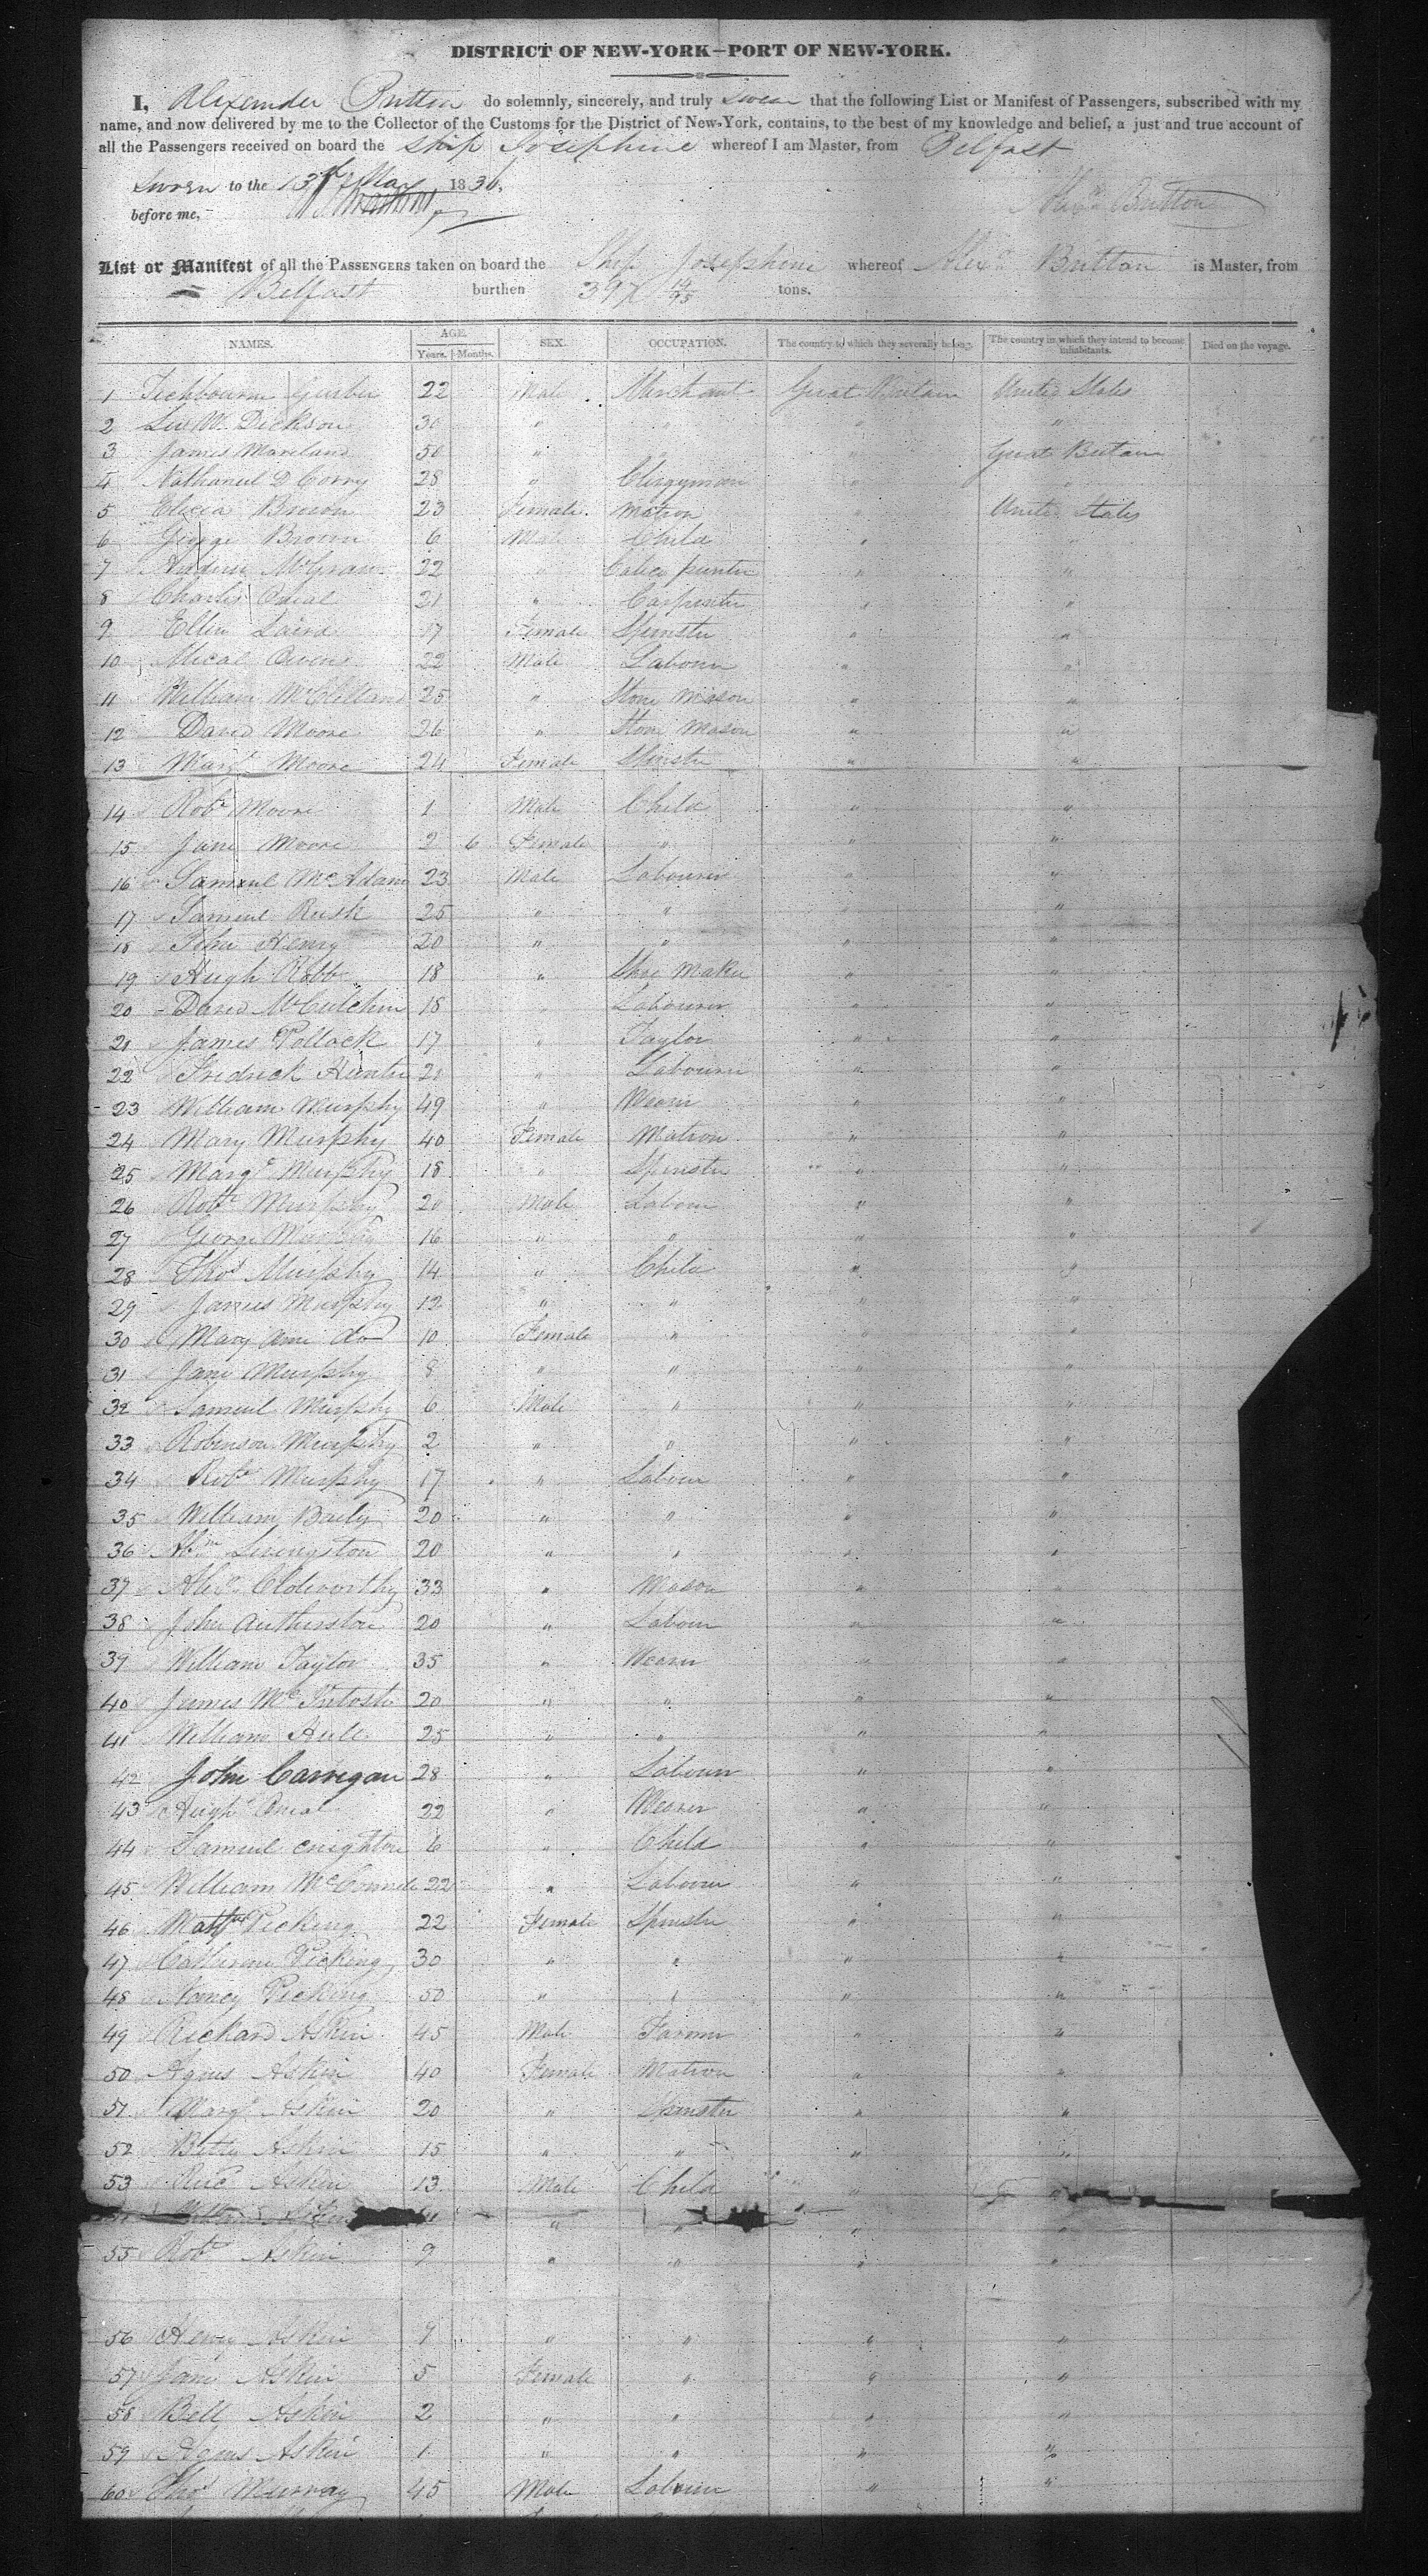 DISTRICT OF NEW-YORK—PORT OF NEW-YORK.
I, Alexander Britton do solemnly, sincerely, and truly Swear that the following List or Manifest of Passengers, subscribed with my
name, and now delivered by me to the Collector of the Customs for the District of New-York, contains, to the best of my knowledge and belief, a just and true account of
all the Passengers received on board the Ship Josephine whereof I am Master, from Belfast
Sworn to the 13th May 1836,
before me, Alexr Britton
List or Manifest of all the PASSENGERS taken on board the Ship Josephine whereof Alexr Britton is Master, from
Belfast burthen 397 19/95 tons.
NAMES. AGE. Years. Months. SEX. OCCUPATION. The country to which they severally belong. The country in which they intend to become inhabitants. Died on the voyage.
1 22 Male Merchant Great Britain United States
2 Dickson 30 " " " "
3 James 50 " " " Great Britain
4 Nathaniel D Corry 28 " Clergyman " "
5 Brown 23 Female Matron " United States
6 George Brown 6 Male Child " "
7 22 " Calico printer " "
8 Charles 21 " Carpenter " "
9 Ellen Laird 17 Female Spinster " "
10 Mical Owens 22 Male Labourer " "
11 William McClelland 25 " Stone Mason " "
12 David Moore 26 " Stone Mason " "
13 Margt Moore 24 Female Spinster " "
14 Robt Moore 1 Male Child " "
15 Jane Moore 2 6 Female " " "
16 Samuel McAdam 23 Male Labourer " "
17 Samuel Rusk 25 " " " "
18 John Henry 20 " " " "
19 Hugh Robb 18 " Shoe Maker " "
20 David McCutchin 18 " Labourer " "
21 James Pollock 17 " Taylor " "
22 Fredrick Hunter 21 " Labourer " "
23 William Murphy 49 " Weaver " "
24 Mary Murphy 40 Female Matron " "
25 Margt Murphy 18 " Spinster " "
26 Robt Murphy 20 Male Labour " "
27 George Murphy 16 " " " "
28 Thos Murphy 14 " Child " "
29 James Murphy 12 " " " "
30 Mary Ann do 10 Female " " "
31 Jane Murphy 8 " " " "
32 Samuel Murphy 6 Male " " "
33 Robinson Murphy 2 " " " "
34 Robt Murphy 17 " Labour " "
35 William Baily 20 " " " "
36 Abm Livingston 20 " " " "
37 Alexr 33 " Mason " "
38 John 20 " Labour " "
39 William Taylor 35 " Weaver " "
40 James McIntosh 20 " " " "
41 William 25 " " " "
42 John Carregan 28 " Labour " "
43 Hugh 22 " Weaver " "
44 Samuel Crighton 6 " Child " "
45 William McConnell 22 " Labour " "
46 Picking 22 Female Spinster " "
47 Catherine Picking 30 " " " "
48 Nancy Picking 50 " " " "
49 Richard Askin 45 Male Farmer " "
50 Agnes Askin 40 Female Matron " "
51 Margt Askin 20 " Spinster " "
52 Betty Askin 15 " " " "
53 Ricd Askin 13 Male Child " "
William Askin 11 " " " "
55 Robt Askin 9 " " " "
56 Henry Askin 9 " " " "
57 Jane Askin 5 Female " " "
58 Bell Askin 2 " " " "
59 Agnes Askin 1 " " " "
60 Thos Murray 45 Male Labour " "